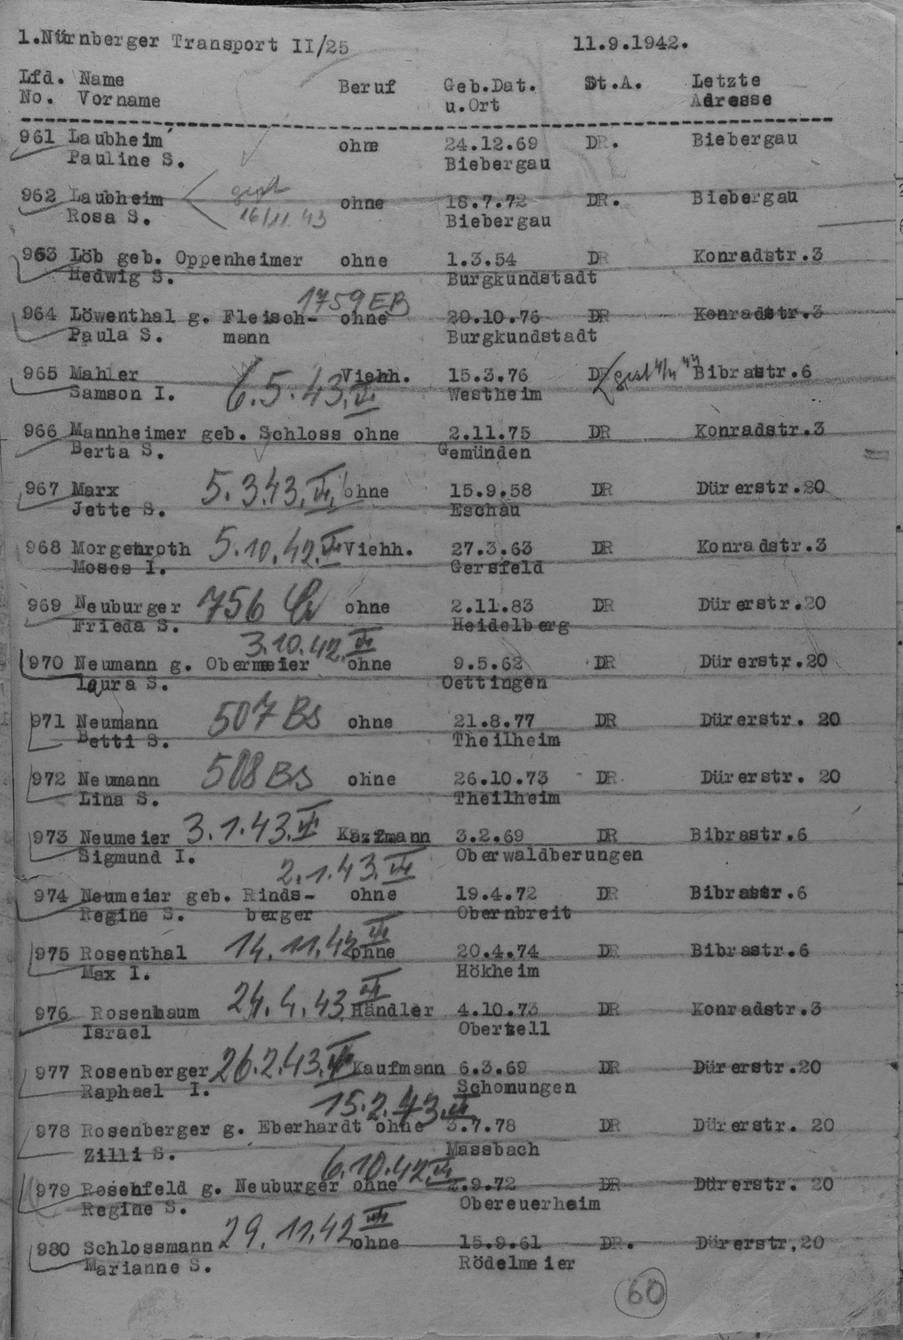 1.Nürnberger Transport II/25 11.9.1942.
Lfd. Name Beruf Geb.Dat. St.A. Letzte
No. Vorname u.Ort Adresse
961 Laubheim ohne 24.12.69 DR. Biebergau
Pauline S. Biebergau
962 Laubheim gest ohne 18.7.72 DR. Biebergau
Rosa S. 16/11 43 Biebergau
963 Löb geb. Oppenheimer ohne 1.3.54 DR Konradstr.3
Hedwig S. Burgkundstadt
1759 EB
964 Löwenthal g. Fleisch- ohne 20.10.76 DR Konradstr.3
Paula S. mann Burgkundstadt
965 Mahler Viehh. 15.3.76 DR gest Bibrastr.6
Samson I. 6.5.43. Westheim
966 Mannheimer geb. Schloss ohne 2.11.75 DR Konradstr.3
Berta S. Gemünden
967 Marx 5.3.43. ohne 15.9.58 DR Dürerstr.20
Jette S. Eschau
968 Morgenroth 5.10.42. Viehh. 27.3.63 DR Konradstr.3
Moses I. Gersfeld
969 Neuburger 756 ohne 2.11.83 DR Dürerstr.20
Frieda S. Heidelberg
3.10.42.
970 Neumann g. Obermeier ohne 9.5.62 DR Dürerstr.20
Laura S. Oettingen
971 Neumann 507 BS ohne 21.8.77 DR Dürerstr. 20
Betti S. Theilheim
972 Neumann 508 BS ohne 26.10.73 DR. Dürerstr. 20
Lina S. Theilheim
973 Neumeier 3.1.43. Kaufmann 3.2.69 DR Bibrastr.6
Sigmund I. Oberwaldberungen
2.1.43.
974 Neumeier geb. Rinds- ohne 19.4.72 DR Bibrastr.6
Regine S. berger Obernbreit
975 Rosenthal 14.11.42 ohne 20.4.74 DR Bibrastr.6
Max I. Hökheim
976 Rosenbaum 24.4.43 Händler 4.10.73 DR Konradstr.3
Israel Oberzell
977 Rosenberger 26.2.43. Kaufmann 6.3.69 DR Dürerstr.20
Raphael I. Schonungen
15.2.43.
978 Rosenberger g. Eberhardt ohne 3.7.78 DR Dürerstr. 20
Zilli S. Massbach
6.10.42
979 Rosenfeld g. Neuburger ohne 2.9.72 DR Dürerstr. 20
Regine S. Obereuerheim
980 Schlossmann 29.11.42 ohne 15.9.61 DR. Dürerstr.20
Marianne S. Rödelmeier
60